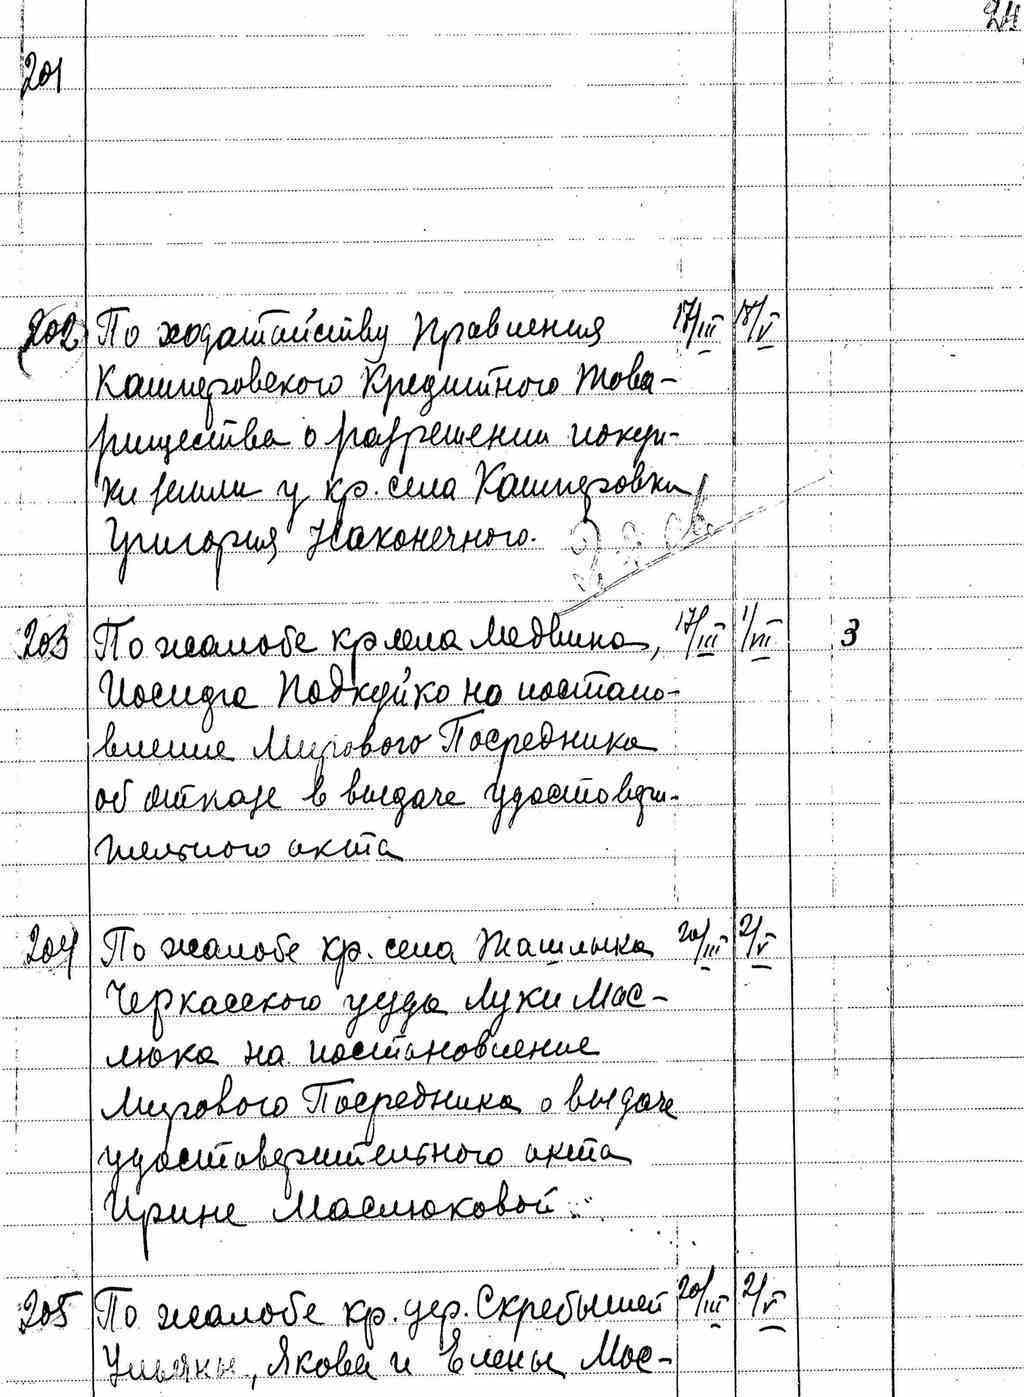 24
201
202 По ходатайству Правления 17/III 18/V
Кашперовского Кредитного Това-
рищества о разрешении покуп-
ки земли у кр. села Кашперовки
Григория Наконечного.
203 По жалобе кр. села Медвина, 17/III 1/VII 3
Иосифа Подкуйко на постано-
вление Мирового Посредника
об отказе в выдаче удостовери-
тельного акта
204 По жалобе кр. села Ташлыка 20/III 2/V
Черкасского уезда Луки Мас-
люка на постановление
Мирового Посредника о выдаче
удостоверительного акта
Ирине Маслюковой
205 По жалобе кр. дер. Скребышей 20/III 2/V
Ульяны, Якова и Елены Мас-